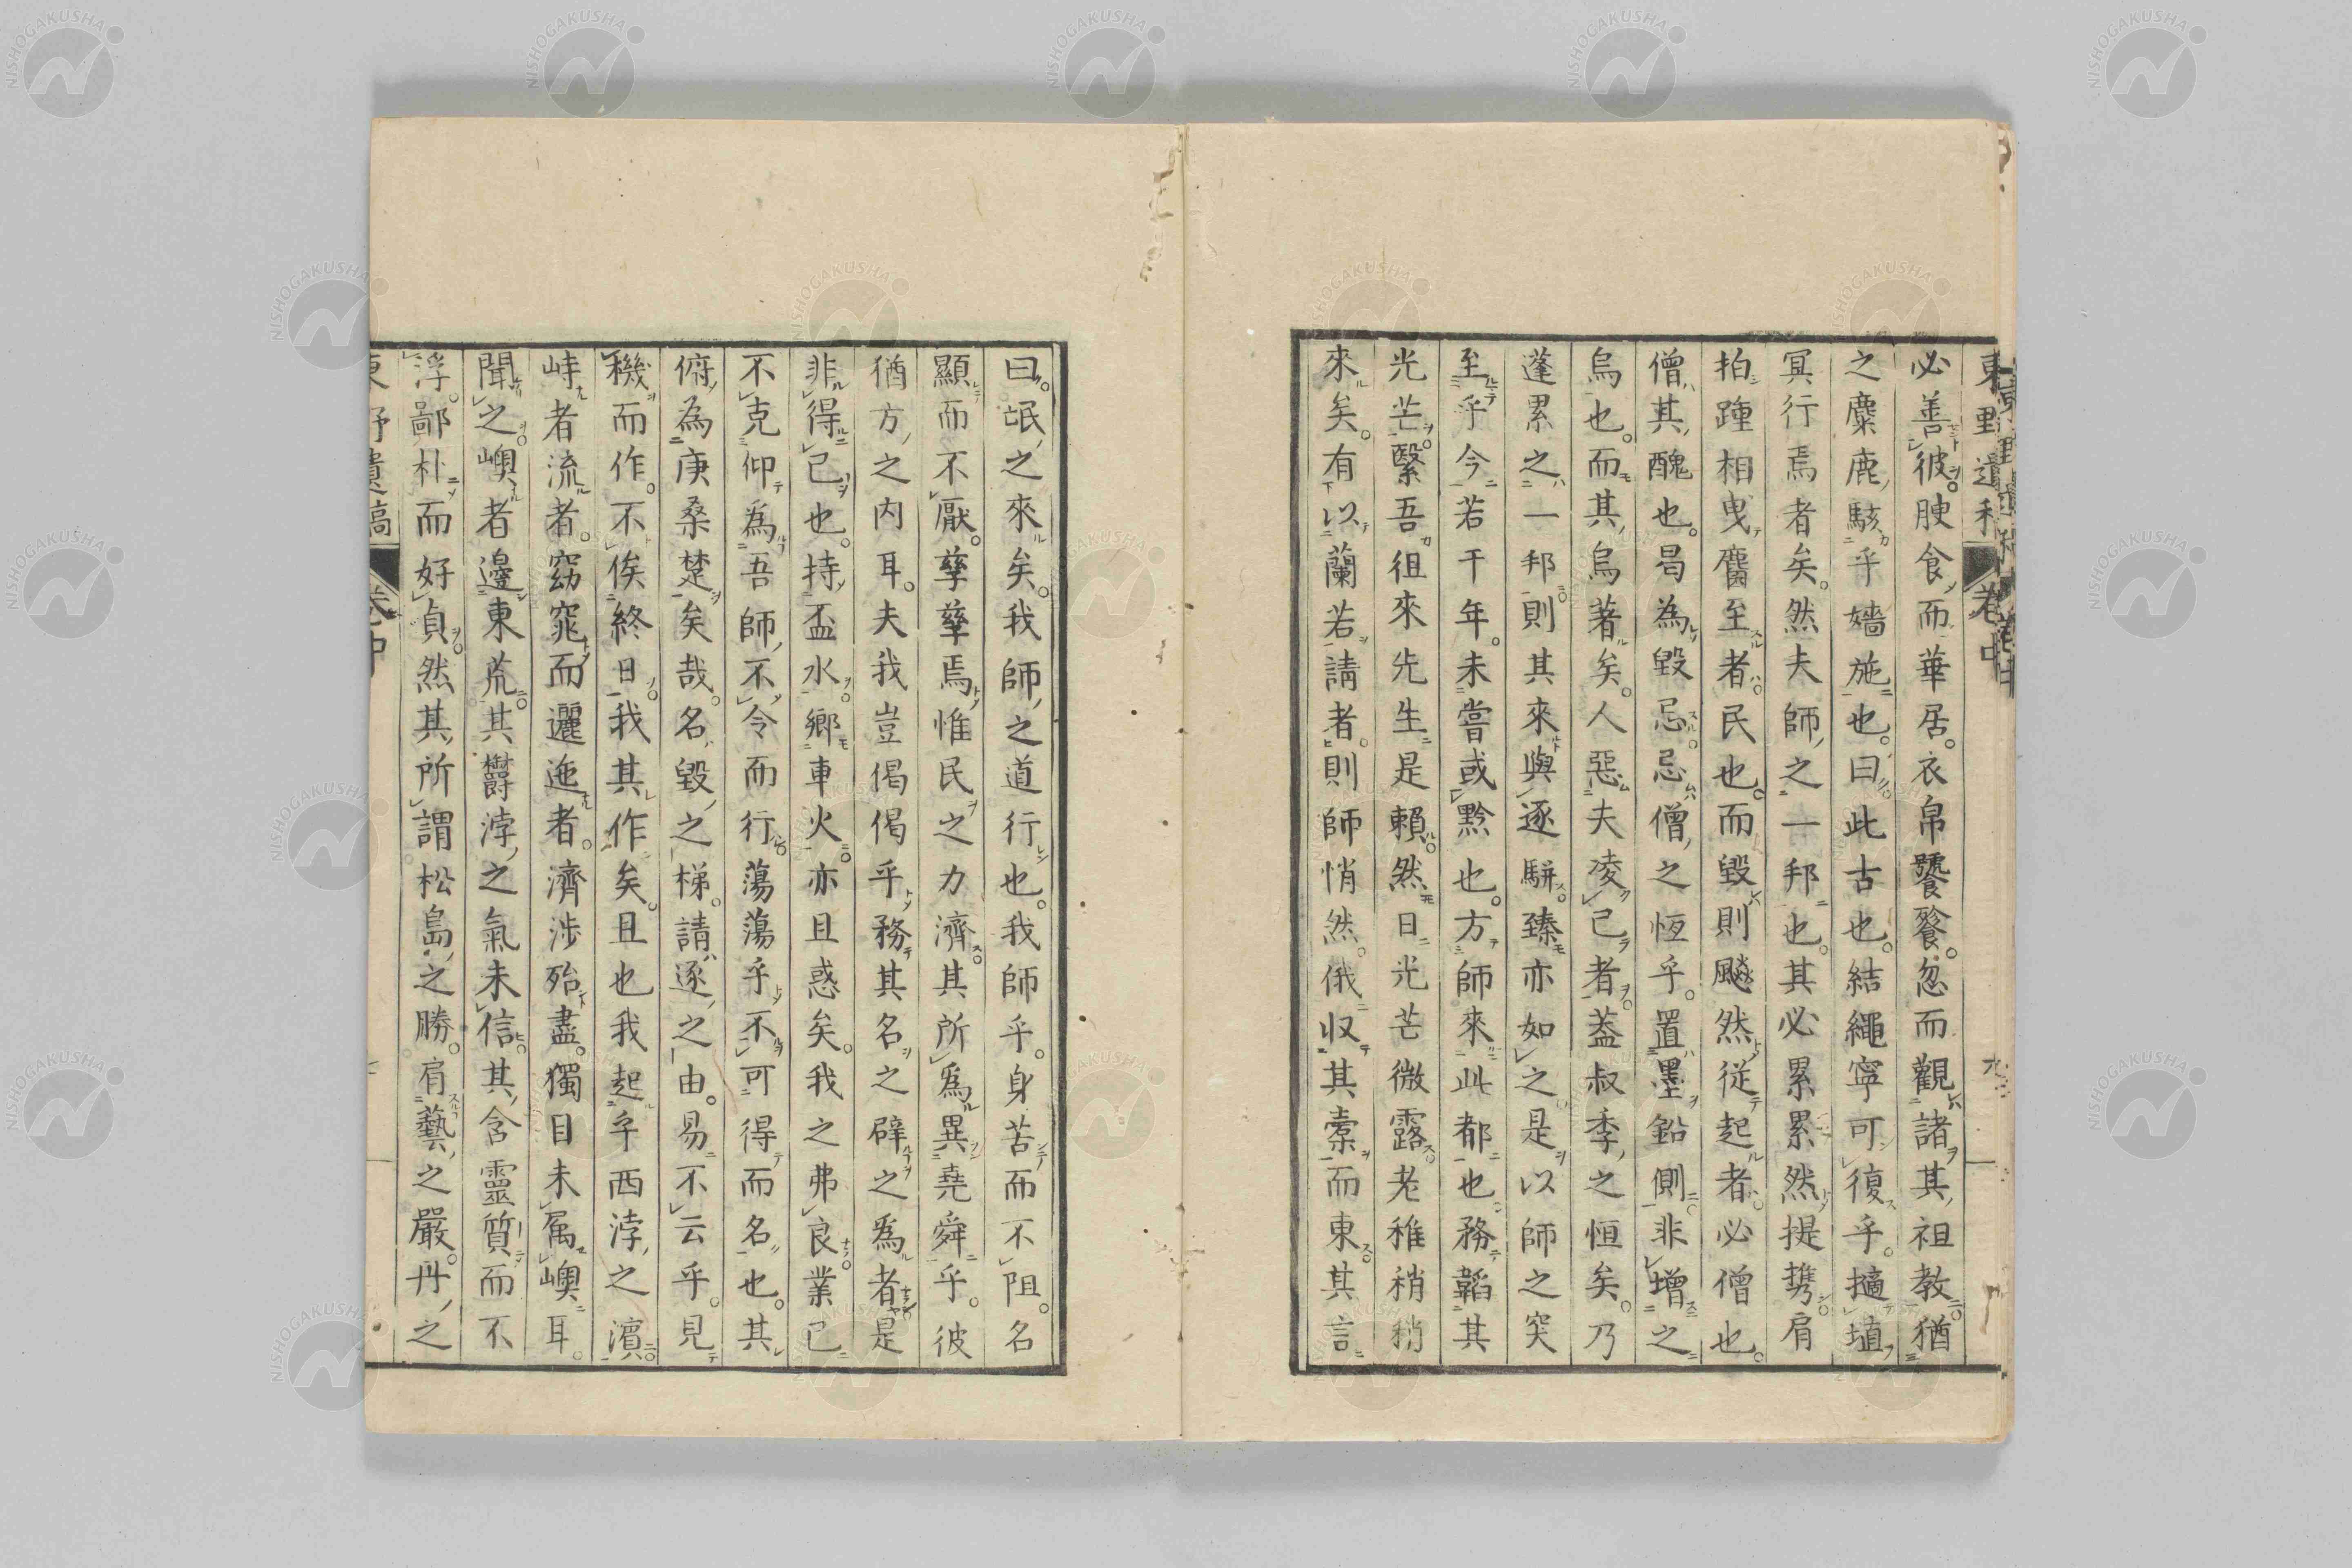 東野遺稿 卷中 九
必善彼腴食而華居衣帛饔飱忽而觀諸其祖教猶
之麋鹿駭乎嬙施也曰此古也結繩寧可復乎擿埴
冥行焉者矣然夫師之一邦也其必累累然提携肩
拍踵相曳麕至者民也而毀則飈然従起者必僧也
僧其醜也曷為毀忌忌僧之恆乎置墨鉛側非增之
烏也而其烏著矣人惡夫凌己者葢叔季之恒矣乃
蓬累之一邦則其來與逐駢臻亦如之是以師之突
至乎今若干年未嘗或黔也方師來此都也務韜其
光芒緊吾徂來先生是賴然日光芒微露老稚稍稍
來矣有以蘭若請者則師悄然俄収其橐而東其言
曰氓之來矣我師之道行也我師乎身苦而不阻名
顯而不厭孳孳焉惟民之力濟其所為異堯舜乎彼
猶方之内耳夫我豈偈偈乎務其名之辟之為者是
非得已也持盃水鄉車火亦且惑矣我之弗良業已
不克仰為吾師不令而行蕩蕩乎不可得而名也其
俯為庚桑楚矣哉名毀之梯請逐之由易不云乎見
機而作不俟終日我其作矣且也我起乎西浡之濵
峙者流者窈窕而邐迤者濟涉殆盡獨目未属嶼耳
聞之嶼者邊東荒其欝浡之氣未信其含靈質而不
浮鄙朴而好貞然其所謂松島之勝肩藝之嚴丹之
東野遺稿 卷中